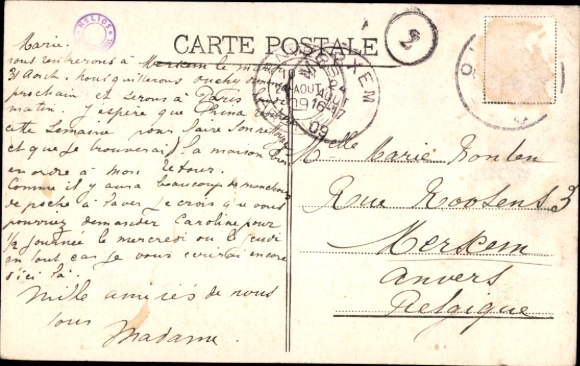 HELIOS
CARTE POSTALE
2
Marie.
nous rentrerons à Merxem le mardi
31 Août. nous quitterons Ouchy
prochain et serons à Paris
matin. J'espère que China
cette semaine vous faire
et que je trouverai la maison bien
en ordre à mon retour.
Comme il y aura beaucoup de mouchoirs
de poche à laver je crois que vous
pourriez demander Caroline pour
1/2 journée le mercredi ou le jeudi
en tout cas je vous écrirai encore
d'ici là.
Mille amitiés de nous
tous
Madame.
MERXEM
24 AOUT
16-17
09
Melle Marie
Rue Roosens 3
Merxem
Anvers
Belgique